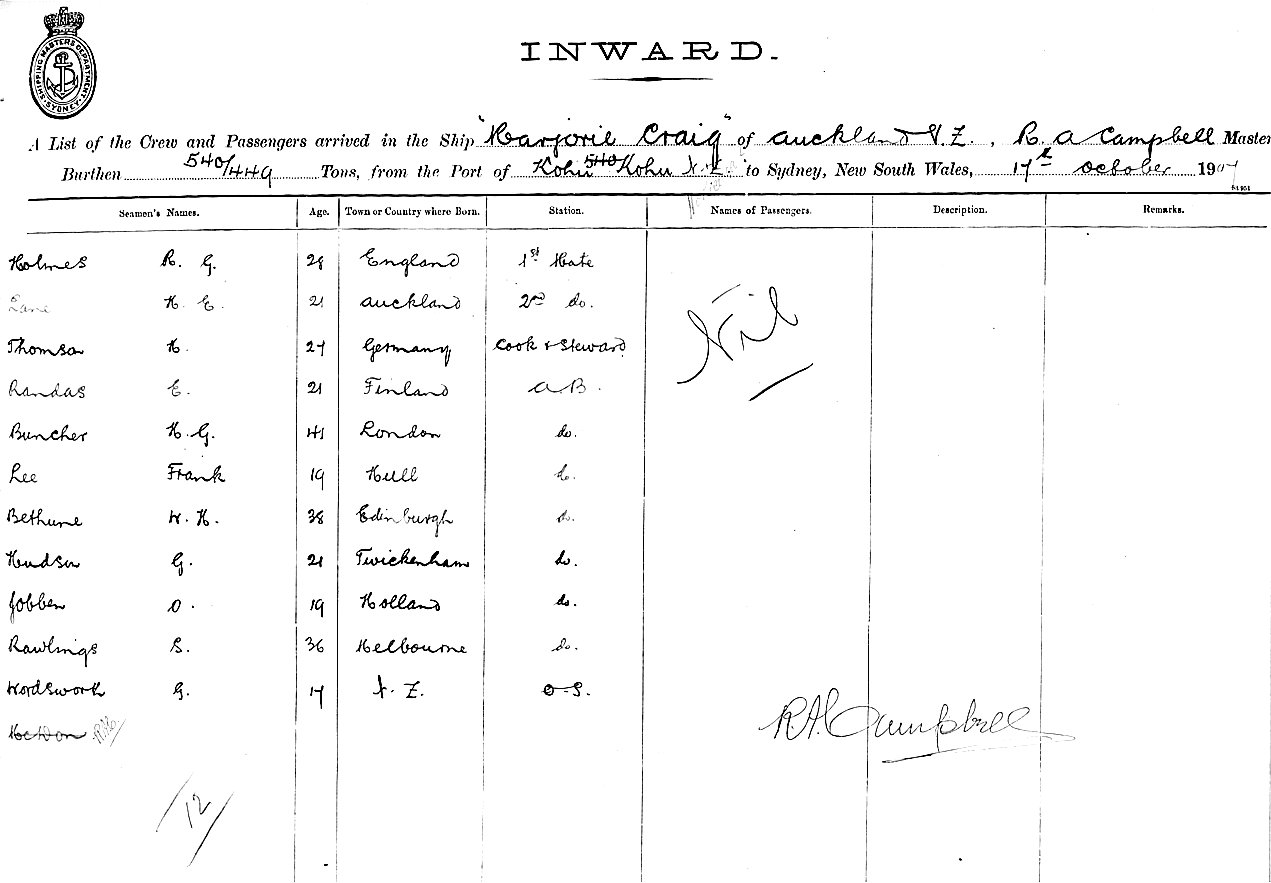 SHIPPING MASTERS DEPARTMENT. SYDNEY
INWARD.
A List of the Crew and Passengers arrived in the Ship "Marjorie Craig" of Auckland N.Z., R. A Campbell Master
Burthen 540/449 Tons, from the Port of Kohu 540 Kohu N.Z. to Sydney, New South Wales, 17th October 1907
Seamen's Names. Age. Town or Country where Born. Station. Names of Passengers. Description. Remarks.
Holmes R. G. 28 England 1st Mate
Lane H. E. 21 Auckland 2nd do.
Nil
Thomson H. 27 Germany Cook & Steward
Randas E. 21 Finland AB.
Buncher H. G. 41 London do.
Lee Frank 19 Hull do.
Bethune W. H. 38 Edinburgh do.
Hudson G. 21 Twickenham do.
Jobben O. 19 Holland do.
Rawlings S. 36 Melbourne do.
Wordsworth G. 17 N.Z. O.S.
R.A. Campbell
12